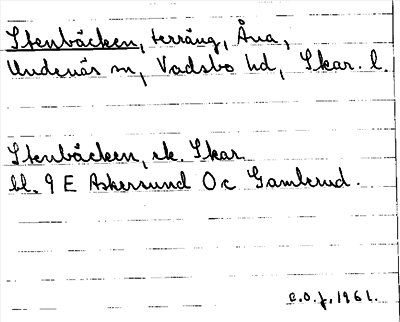 Stenbäcken, terräng, Åna,
Undenäs sn, Vadsbo hd, Skar. l.
Stenbäcken, ek. Skar.
bl. 9 E Askersund O c Gamlerud.
C.O.f. 1961.